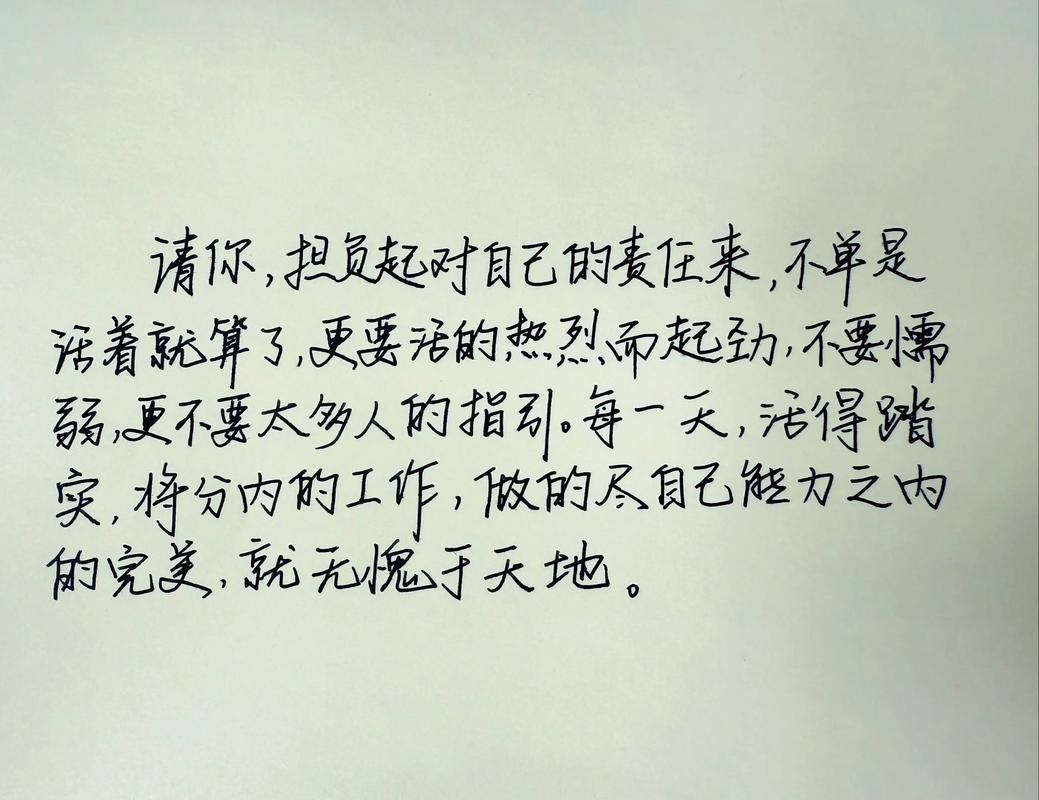 请你,担负起对自己的责任来,不单是
活着就算了,更要活的热烈而起劲,不要懦
弱,更不要太多人的指引。每一天,活得踏
实,将分内的工作,做的尽自己能力之内
的完美,就无愧于天地。